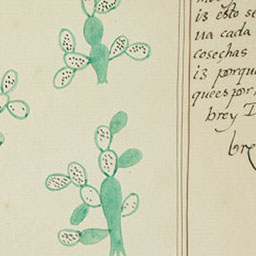 is esto se
na cada
cosechas
is porqu
quees por
brey D